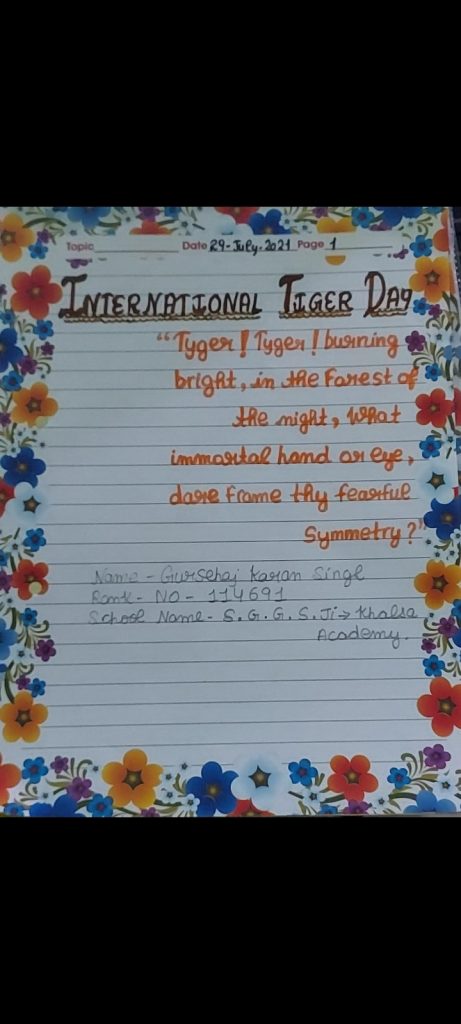 Topic Date 29-July-2021 Page 1
INTERNATIONAL TIGER DAY
"Tyger! Tyger! burning
bright, in the Forest of
the night, What
immortal hand or eye,
dare frame thy fearful
Symmetry?"
Name - Gursehaj Karan Singh
Rank - NO - 114691
School Name - S. G. G. S. Ji → Khalsa
Academy.